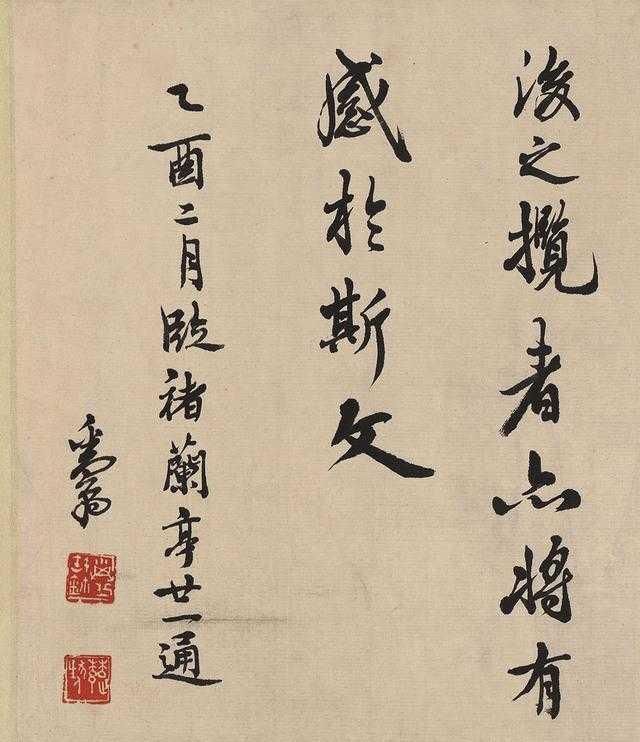 後之攬者亦將有
感於斯文
乙酉二月臨褚蘭亭廿一通